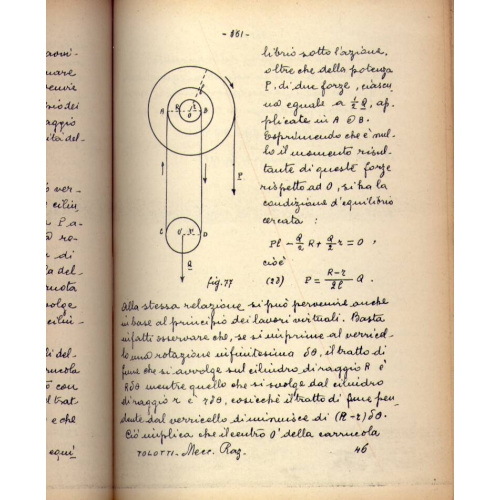 - 361 -
librio sotto l'azione,
oltre che della potenza
P, di due forze, ciascu-
na eguale a 1/2 Q, ap-
plicate in A e B.
Esprimendo che è nul-
lo il momento risul-
tante di queste forze
rispetto ad O, si ha la
condizione d'equilibrio
cercata :
Pl - Q/2 R + Q/2 r = 0 ,
cioè
(28) P = R-r/2l Q .
A R r B
O
P
C O' r' D
Q
fig. 77
Alla stessa relazione si può pervenire anche
in base al principio dei lavori virtuali. Basta
infatti osservare che, se si imprime al verricel-
lo una rotazione infinitesima δθ, il tratto di
fune che si avvolge sul cilindro di raggio R è
Rδθ mentre quello che si svolge dal cilindro
di raggio r è rδθ, cosicchè il tratto di fune pen-
dente dal verricello diminuisce di (R-r)δθ.
Ciò implica che il centro O' della carrucola
TOLOTTI - Mecc. Raz. 46